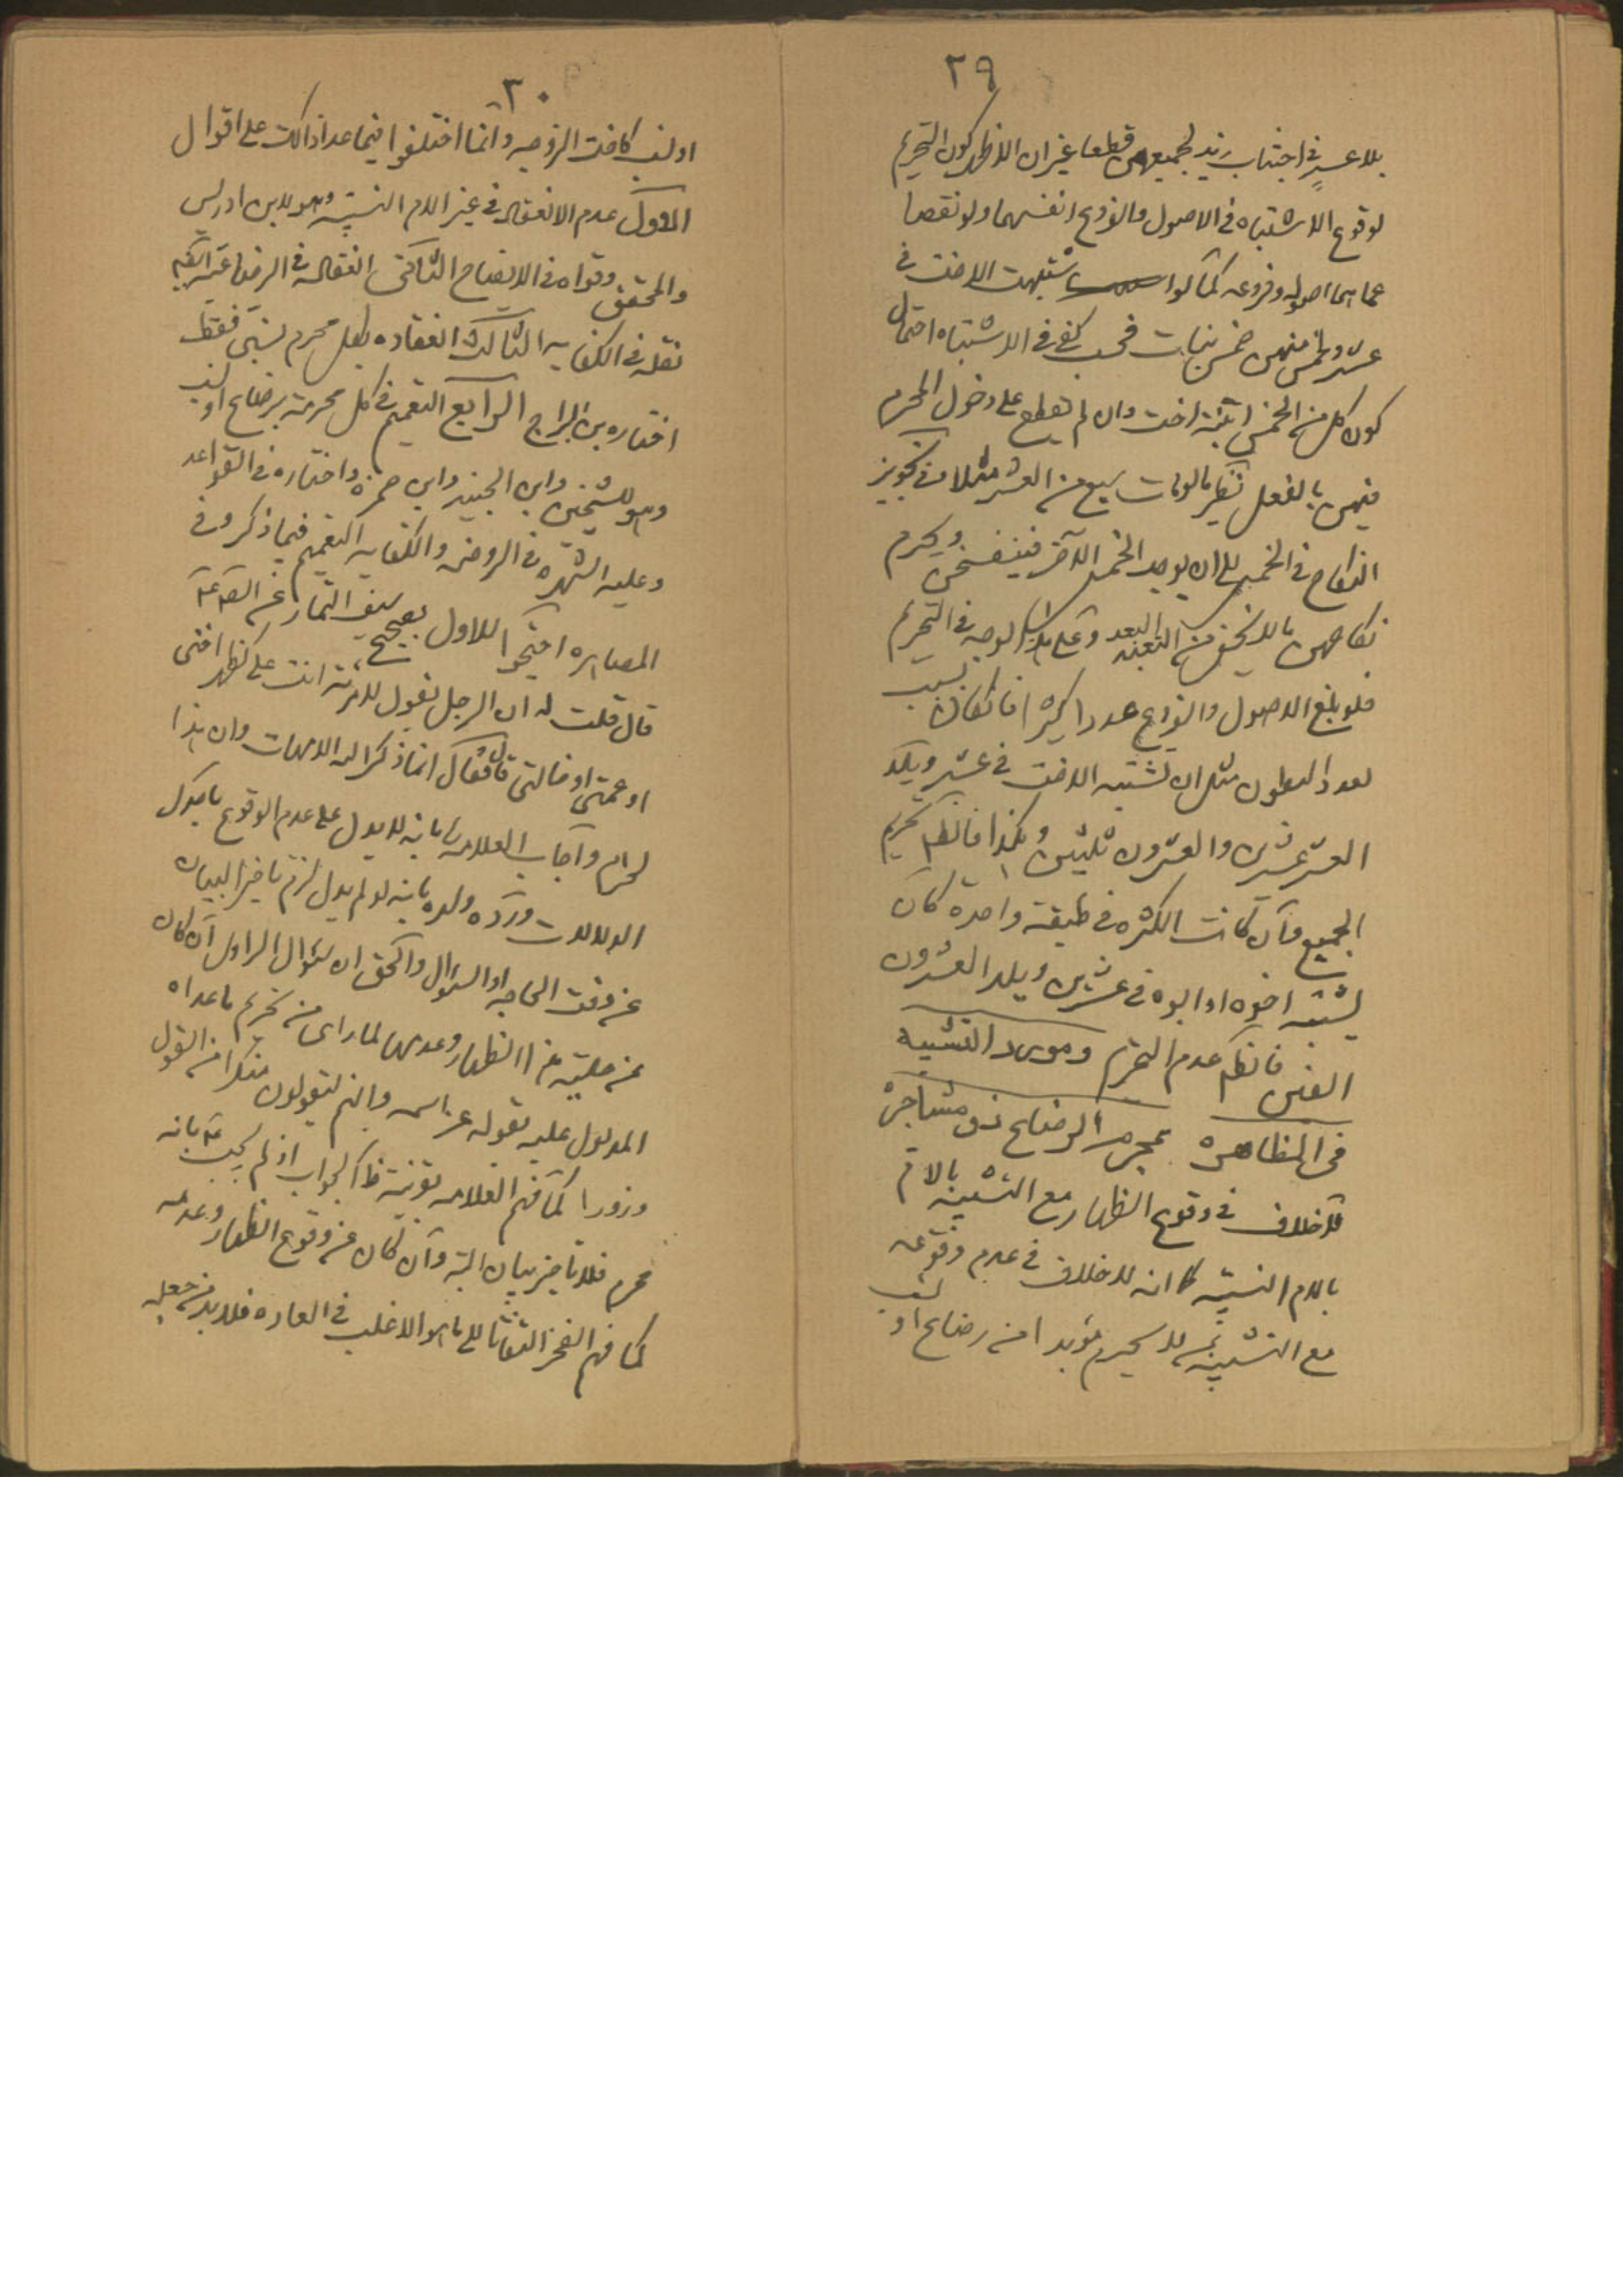 ٢٩
بلا عسر في اجتناب زيد لجميعهن قطعا غير ان الاظهر كون التحريم
لوقوع الاشتباه في الاصول والفروع انفسهما ولو نقصا
عما هما اصوله وفروعه كما لو اشتبهت الاخت في
عشر ولخمس منهن خمس بنات فحسب كفى في الاشتباه احتمال
كون كل من الخمس ابنة اخت وان لم نقطع على دخول المحرم
فيهن بالفعل نظير ما لو مات سبع من العشر مثلا في تجويز
النكاح في الخمس الى ان يوجد الخمس الآخر فينفسخن ويحرم
نكاحهن بالا من البعد وعلى الوجه في التحريم
فلو بلغ الاصول والفروع عددا كثيرا فان كان بسبب
تعدد البطون مثل ان تشتبه الاخت في عشر ويلد
العشر عشرين والعشرون ثلثين وهكذا فالظاهر تحريم
الجميع وان كانت الكثرة في طبقة واحدة كان
يشتبه اخوه او ابوه في عشرين ويلد العشرون
الفين فالظاهر عدم التحريم ومورد التشبيه
في المظاهرة بمحرم الرضاع ذو مشاجرة
فلا خلاف في وقوع الظهار مع التشبيه بالام
بالام النسبيه كما انه لا خلاف في عدم وقوعه
مع التشبيه بمن لا يحرم مؤبدا من رضاع او نسب
٣٠
او لنسب كاخت الزوجه وانما اختلفوا فيما عدا ذالك على اقوال
الاول عدم الانعقاد في غير الام النسبيه وهو لابن ادريس
والمحقق وقواه في الايضاح الثاني انعقاده في الرضاعيه ايضا
نقله في الكفايه الثالث انعقاده بكل محرم نسبي فقط
اختاره بن البراج الرابع التعميم في كل محرمة برضاع او نسب
وهو للشيخين وابن الجنيد وابن حمزه واختاره في القواعد
وعليه الشهره في الروضه والكفايه التعميم فيما ذكر وفي
المصاهره احتجوا للاول بصحيح سيف التمار عن الصادق ع
قال قلت له ان الرجل يقول لامرئته انت علي كظهر اختي
او عمتي او خالتي قال فقال انما ذكر الله الامهات وان هذا
لحرام واجاب العلامه بانه لا يدل على عدم الوقوع باحدى
الدلالات ورده ولده بانه لو لم يدل لزم تاخير البيان
عن وقت الحاجه او السؤال والحق ان سؤال الراوي ان كان
عن حليته هذا الظهار وعدمها لما راى من تحريم ما عداه
المدلول عليه بقوله عز اسمه وانهم ليقولون منكرا من القول
وزورا كما فهم العلامه بقرينة ظ الجواب اذ لم يجب ع بانه
محرم فلا تاخير بيان البته وان كان عن وقوع الظهار وعدمه
كما فهم الفخر التفاتا الى ما هو الاغلب في العاده فلا بد من جعله